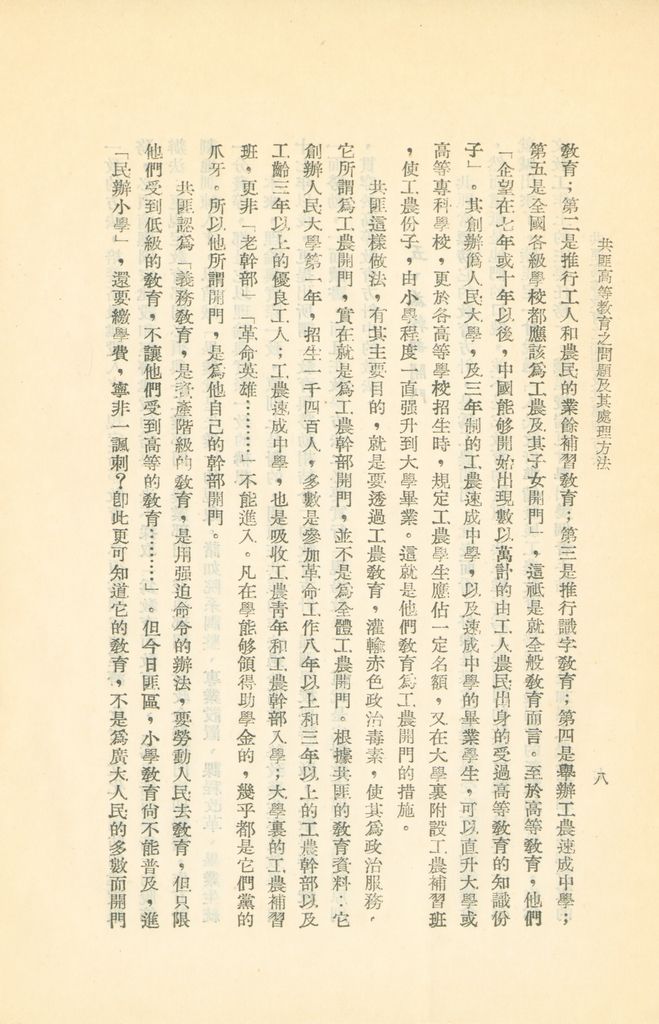 共匪高等敎育之問題及其處理方法
八
敎育；第二是推行工人和農民的業餘補習敎育；第三是推行識字敎育；第四是舉辦工農速成中學；
第五是全國各級學校都應該爲工農及其子女開門」，這祇是就全般敎育而言。至於高等敎育，他們
「企望在七年或十年以後，中國能够開始出現數以萬計的由工人農民出身的受過高等敎育的知識份
子」。其創辦僞人民大學，及三年制的工農速成中學，以及速成中學的畢業學生，可以直升大學或
高等專科學校，更於各高等學校招生時，規定工農學生應佔一定名額，又在大學裏附設工農補習班
，使工農份子，由小學程度一直强升到大學畢業。這就是他們敎育爲工農開門的措施。
共匪這樣做法，有其主要目的，就是要透過工農敎育，灌輸赤色政治毒素，使其爲政治服務。
它所謂爲工農開門，實在就是爲工農幹部開門，並不是爲全體工農開門。根據共匪的敎育資料：它
創辦人民大學第一年，招生一千四百人，多數是參加革命工作八年以上和三年以上的工農幹部以及
工齡三年以上的優良工人；工農速成中學，也是吸收工農靑年和工農幹部入學；大學裏的工農補習
班，更非「老幹部」「革命英雄………」不能進入。凡在學能够領得助學金的，幾乎都是它們黨的
爪牙。所以他所謂開門，是爲他自己的幹部開門。
共匪認爲「義務敎育，是資產階級的敎育，是用强迫命令的辦法，要勞動人民去敎育，但只限
他們受到低級的敎育，不讓他們受到高等的敎育………」。但今日匪區，小學敎育尙不能普及，進
「民辦小學」，還要繳學費，寧非一諷刺？卽此更可知道它的敎育，不是爲廣大人民的多數而開門